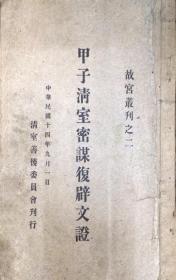 故宮叢刊之二
甲子清室密謀復辟文證
中華民國十四年九月一日
清室善後委員會刊行